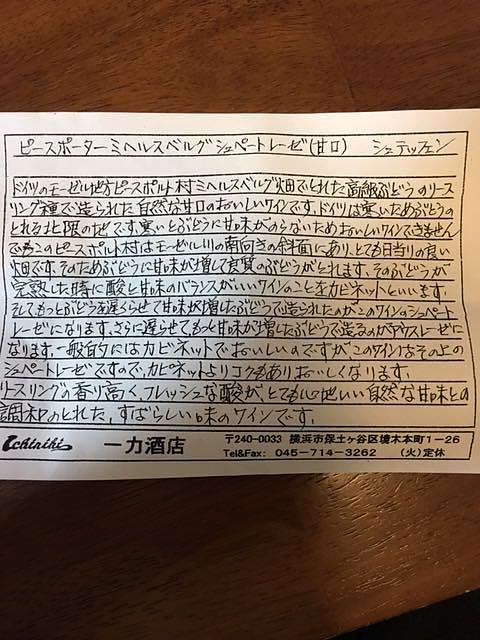 ピースポーターミヘルスベルグシュペートレーゼ(甘口) シュテッフェン
ドイツのモーゼル地方ピースポルト村ミヘルスベルグ畑でとれた高級ぶどうのリース
リング種で造られた自然な甘口のおいしいワインです。ドイツは寒いためぶどうの
とれる北限の地です。寒いとぶどうに甘味がのらないためおいしいワインできません
でもこのピースポルト村はモーゼル川の南向きの斜面にあり、とても日当りの良い
畑です。そのためぶどうに甘味が増して良質のぶどうがとれます。そのぶどうが
完熟した時に酸と甘味のバランスがいいワインのことをカビネットといいます。
そしてもっとぶどうを遅くらせて甘味が増したぶどうで造られたのがこのワインのシュペート
レーゼになります。さらに遅らせてもっと甘味が増したぶどうで造るのがアウスレーゼに
なります。一般的にはカビネットでおいしいのですが、このワインはその上の
シュペートレーゼですので、カビネットよりコクもありおいしくなります。
リースリングの香り高く、フレッシュな酸が、とても心地いい自然な甘味との
調和のとれた、すばらしい味のワインです。
Ichiriki 一力酒店 〒240-0033 横浜市保土ヶ谷区境木本町1-26
Tel&Fax: 045-714-3262 (火)定休